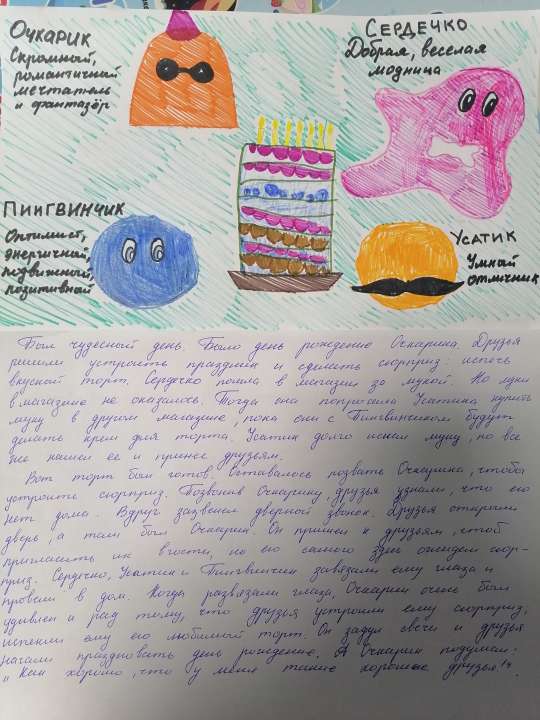 Очкарик
Скромный,
романтичный
мечтатель
и фантазёр
Сердечко
Добрая, веселая
модница
Пингвинчик
Оптимист,
энергичный,
подвижный,
позитивный
Усатик
Умный
отличник
Был чудесный день. Было день рождение Очкарика. Друзья
решили устроить праздник и сделать сюрприз: испечь
вкусный торт. Сердечко пошла в магазин за мукой. Но муки
в магазине не оказалось. Тогда она попросила Усатика купить
муку в другом магазине, пока они с Пингвинчиком будут
делать крем для торта. Усатик долго искал муку, но все
же нашел ее и принес друзьям.
Вот торт был готов. Оставалось позвать Очкарика, чтобы
устроить сюрприз. Позвонив Очкарику, друзья узнали, что его
нет дома. Вдруг зазвенел дверной звонок. Друзья открыли
дверь, а там был Очкарик. Он пришел к друзьям, чтоб
пригласить их в гости, но его самого здесь ожидал сюр-
приз. Сердечко, Усатик и Пингвинчик завязали ему глаза и
провели в дом. Когда развязали глаза, Очкарик очень был
удивлен и рад тому, что друзья устроили ему сюрприз,
испекли ему его любимый торт. Он задул свечи и друзья
начали праздновать день рождение. А Очкарик подумал:
"Как хорошо, что у меня такие хорошие друзья!"